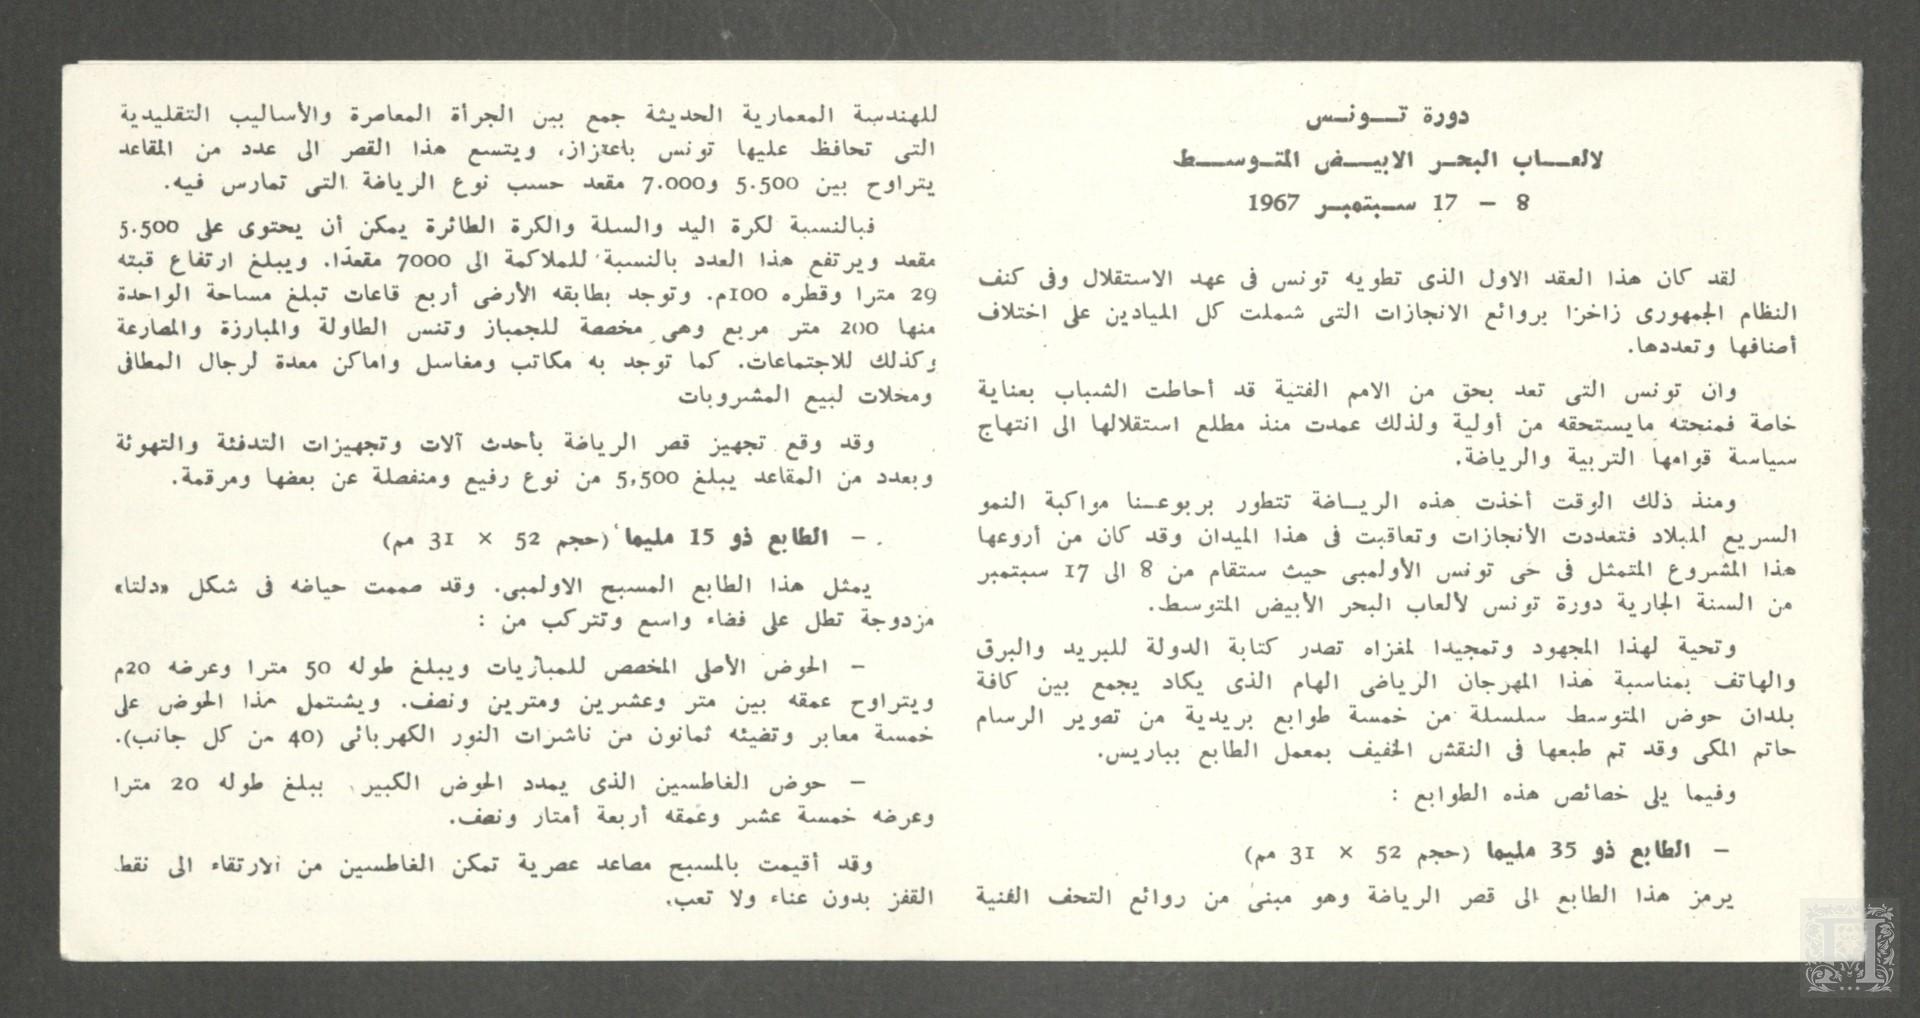 دورة تـــونــس
لالعـــاب البحــر الابيـــض المتــوســـط
8 – 17 ســبتمبــر 1967
لقد كان هذا العقد الاول الذى تطويه تونس فى عهد الاستقلال وفى كنف
النظام الجمهورى زاخرًا بروائع الانجازات التى شملت كل الميادين على اختلاف
أصنافها وتعددها.
وان تونس التى تعد بحق من الامم الفتية قد أحاطت الشباب بعناية
خاصة فمنحته مايستحقه من أولية ولذلك عمدت منذ مطلع استقلالها الى انتهاج
سياسة قوامها التربية والرياضة.
ومنذ ذلك الوقت أخذت هذه الريــاضة تتطور بربوعــنا مواكبة النمو
السريع للبلاد فتعددت الأنجازات وتعاقبت فى هذا الميدان وقد كان من أروعها
هذا المشروع المتمثل فى حى تونس الأولمبى حيث ستقام من 8 الى 17 سبتمبر
من السنة الجارية دورة تونس لألعاب البحر الأبيض المتوسط.
وتحية لهذا المجهود وتمجيدا لمغزاه تصدر كتابة الدولة للبريد والبرق
والهاتف بمناسبة هذا المهرجان الرياضى الهام الذى يكاد يجمع بين كافة
بلدان حوض المتوسط سلسلة من خمسة طوابع بريدية من تصوير الرسام
حاتم المكى وقد تم طبعها فى النقش الخفيف بمعمل الطابع بباريس.
وفيما يلى خصائص هذه الطوابع :
– الطابع ذو 35 مليما (حجم 52 × 31 مم)
يرمز هذا الطابع الى قصر الرياضة وهو مبنى من روائع التحف الفنية
للهندسة المعمارية الحديثة جمع بين الجرأة المعاصرة والأساليب التقليدية
التى تحافظ عليها تونس باعتزاز، ويتسع هذا القصر الى عدد من المقاعد
يتراوح بين 5.500 و7.000 مقعد حسب نوع الرياضة التى تمارس فيه.
فبالنسبة لكرة اليد والسلة والكرة الطائرة يمكن أن يحتوى على 5.500
مقعد ويرتفع هذا العدد بالنسبة للملاكمة الى 7000 مقعدًا. ويبلغ ارتفاع قبته
29 مترا وقطره 100م. وتوجد بطابقه الأرضى أربع قاعات تبلغ مساحة الواحدة
منها 200 متر مربع وهى مخصصة للجمباز وتنس الطاولة والمبارزة والمصارعة
وكذلك للاجتماعات. كما توجد به مكاتب ومغاسل واماكن معدة لرجال المطافى
ومحلات لبيع المشروبات
وقد وقع تجهيز قصر الرياضة بأحدث آلات وتجهيزات التدفئة والتهوئة
وبعدد من المقاعد يبلغ 5,500 من نوع رفيع ومنفصلة عن بعضها ومرقمة.
– الطابع ذو 15 مليما (حجم 52 × 31 مم)
يمثل هذا الطابع المسبح الاولمبى. وقد صممت حياضه فى شكل «دلتا»
مزدوجة تطل على فضاء واسع وتتركب من :
– الحوض الأصلى المخصص للمباريات ويبلغ طوله 50 مترا وعرضه 20م
ويتراوح عمقه بين متر وعشرين ومترين ونصف. ويشتمل هذا الحوض على
خمسة معابر وتضيئه ثمانون من ناشرات النور الكهربائى (40 من كل جانب).
– حوض الغاطسين الذى يمدد الحوض الكبير يبلغ طوله 20 مترا
وعرضه خمسة عشر وعمقه أربعة أمتار ونصف.
وقد أقيمت بالمسبح مصاعد عصرية تمكن الغاطسين من الارتقاء الى نقط
القفز بدون عناء ولا تعب.